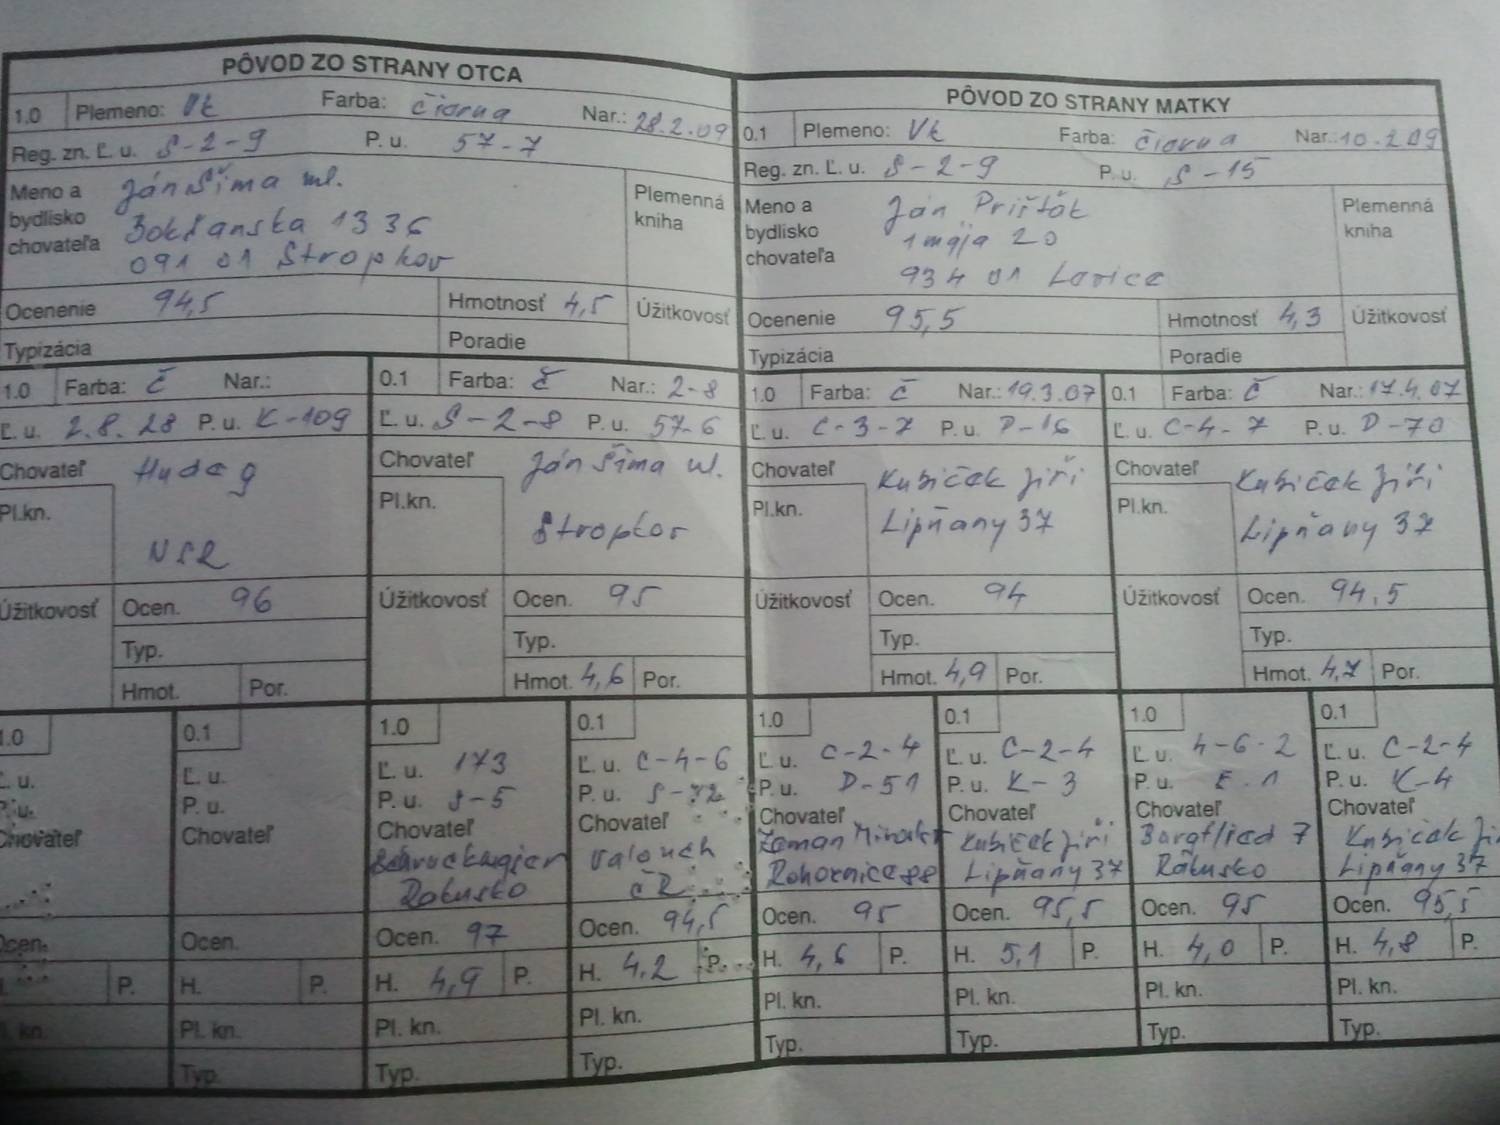 PÔVOD ZO STRANY OTCA
1.0 Plemeno: Vk Farba: čierna Nar.: 28.2.09
Reg. zn. Ľ. u. S-2-9 P. u. 57-7
Meno a bydlisko chovateľa Ján Šima ml.
1336
091 01 Stropkov
Plemenná kniha
Ocenenie 94,5 Hmotnosť 4,5 Úžitkovosť
Typizácia Poradie
PÔVOD ZO STRANY MATKY
0.1 Plemeno: Vk Farba: čierna Nar.: 10.2.09
Reg. zn. Ľ. u. S-2-9 P. u. S-15
Meno a bydlisko chovateľa Ján
1 mája 20
934 01
Plemenná kniha
Ocenenie 95,5 Hmotnosť 4,3 Úžitkovosť
Typizácia Poradie
1.0 Farba: č Nar.:
Ľ. u. 2.8.28 P. u. K-109
Chovateľ
Pl.kn.
Úžitkovosť Ocen. 96
Typ.
Hmot. Por.
0.1 Farba: č Nar.: 2-8
Ľ. u. S-2-8 P. u. 57-6
Chovateľ Ján Šima ml.
Pl.kn. Stropkov
Úžitkovosť Ocen. 95
Typ.
Hmot. 4,6 Por.
1.0 Farba: č Nar.: 19.3.07
Ľ. u. C-3-7 P. u. D-16
Chovateľ Kubiček Jiří
Pl.kn. Lipňany 37
Úžitkovosť Ocen. 94
Typ.
Hmot. 4,9 Por.
0.1 Farba: č Nar.: 17.4.07
Ľ. u. C-4-7 P. u. D-70
Chovateľ Kubiček Jiří
Pl.kn. Lipňany 37
Úžitkovosť Ocen. 94,5
Typ.
Hmot. 4,7 Por.
1.0
Ľ. u.
P. u.
Chovateľ
Ocen.
P.
Pl. kn.
0.1
Ľ. u.
P. u.
Chovateľ
Ocen.
H. P.
Pl. kn.
Typ.
1.0
Ľ. u. 173
P. u. S-5
Chovateľ
Rakúsko
Ocen. 97
H. 4,9 P.
Pl. kn.
Typ.
0.1
Ľ. u. C-4-6
P. u.
Chovateľ
Valouch
ČR
Ocen. 94,5
H. 4,2 P.
Pl. kn.
Typ.
1.0
Ľ. u. C-2-4
P. u. D-51
Chovateľ
Zeman
Ocen. 95
H. 4,6 P.
Pl. kn.
Typ.
0.1
Ľ. u. C-2-4
P. u. K-3
Chovateľ
Kubiček Jiří
Lipňany 37
Ocen. 95,5
H. 5,1 P.
Pl. kn.
Typ.
1.0
Ľ. u. 4-6-2
P. u. E.1
Chovateľ
Rakúsko
Ocen. 95
H. 4,0 P.
Pl. kn.
Typ.
0.1
Ľ. u. C-2-4
P. u. K-4
Chovateľ
Kubiček
Lipňany 37
Ocen. 95,5
H. 4,8 P.
Pl. kn.
Typ.